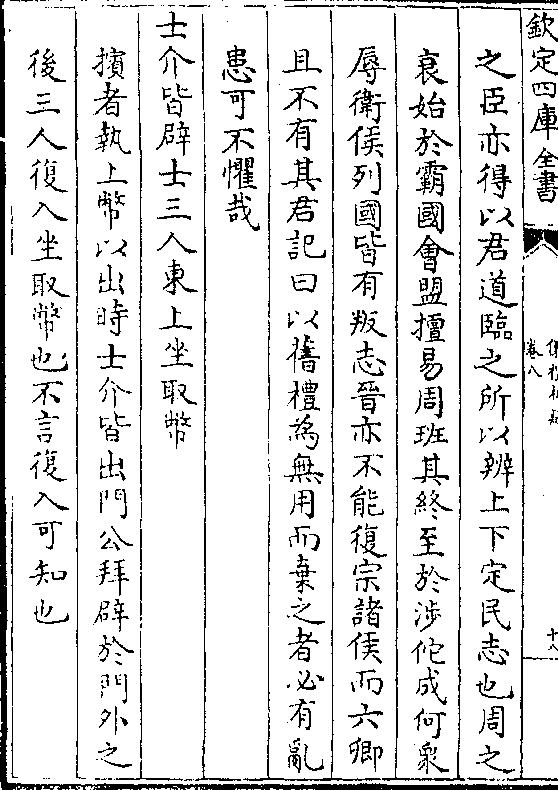 欽定四庫全書
卷八
十八
之臣亦得以君道臨之所以辨上下定民志也周之
衰始於霸國會盟擅易周班其終至於涉佗成何衆
辱衛侯列國皆有叛志晉亦不能復宗諸侯而六卿
且不有其君記曰以舊禮為無用而棄之者必有亂
患可不懼哉
士介皆辟士三人東上坐取幣
擯者執上幣以出時士介皆出門公拜辟於門外之
後三人復入坐取幣也不言復入可知也